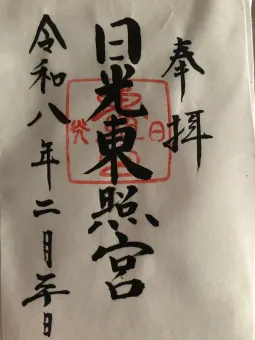 奉拝
日光東照宮
令和八年二月 日